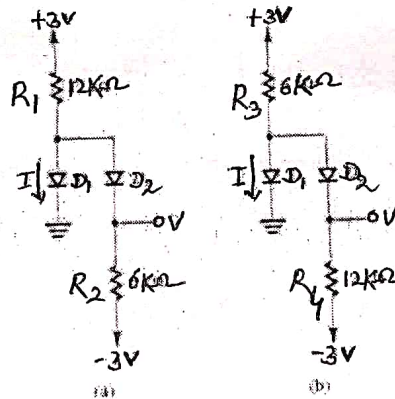 +3V
R1 12KΩ
I D1 D2
0V
R2 6KΩ
-3V
(a)
+3V
R3 6KΩ
I D1 D2
0V
R4 12KΩ
-3V
(b)